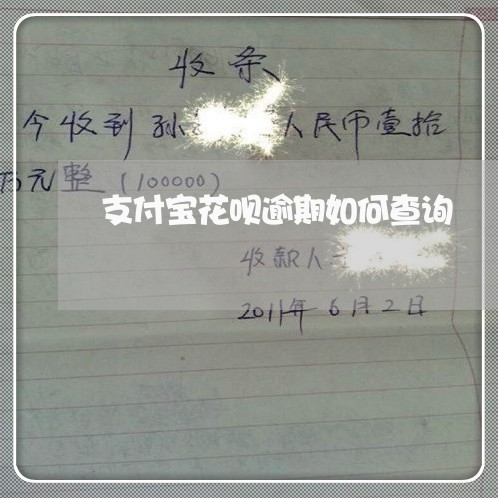 收条
今收到孙 人民币壹拾
万元整（100000）
支付宝花呗逾期如何查询
收款人
2011年6月2日